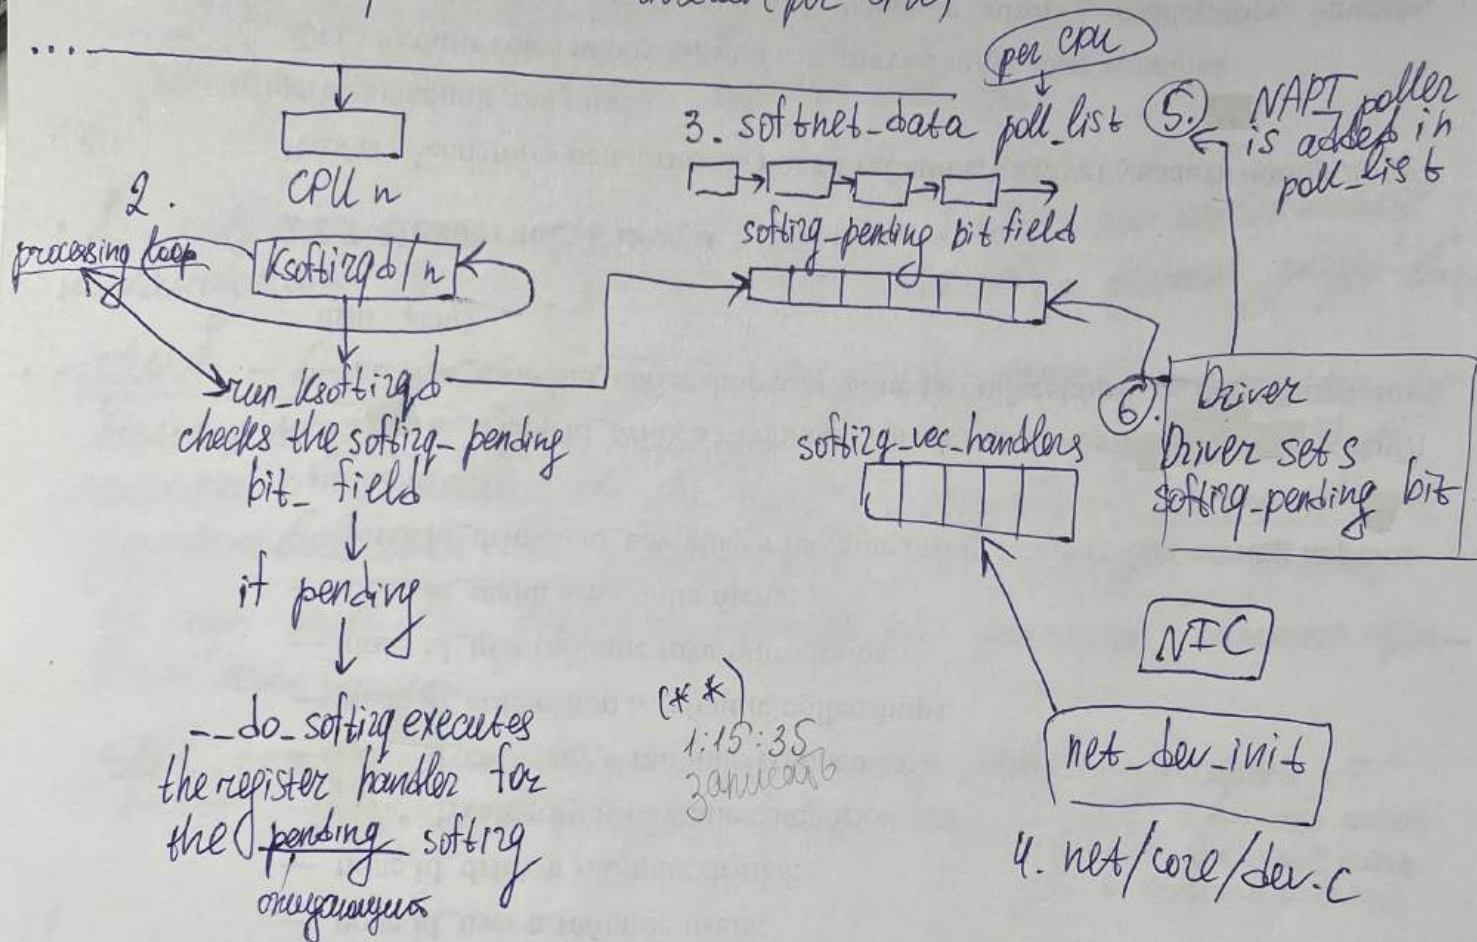 (per CPU)
...
per CPU
CPU n
3. softnet_data poll_list
5.
NAPI poller
is added in
poll_list
2.
processing loop
ksoftirqd/n
softirq_pending bit field
run_ksoftirqd
checks the softirq_pending
bit_ field
if pending
__do_softirq executes
the register handler for
the pending softirq
ожидающий
softirq_vec_handlers
6.
Driver
Driver sets
softirq_pending bit
NIC
(**)
1:15:35
записать
net_dev_init
4. net/core/dev.c